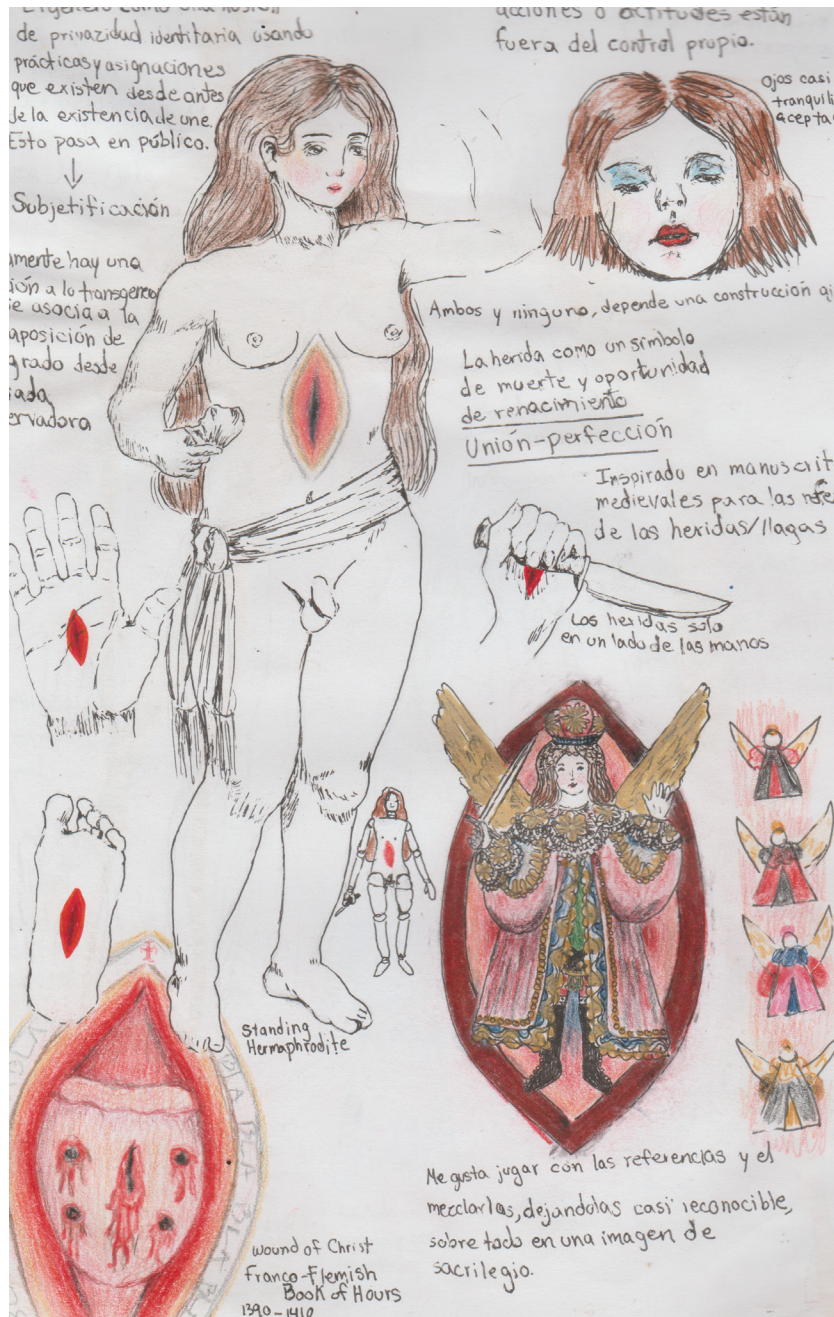 de privazidad identitaria usando
prácticas y asignaciones
que existen desde antes
de la existencia de une.
Esto pasa en público.
Subjetificación
amente hay una
ión a lo transgenero
se asocia a la
aposición de
grado desde
ada
ervadora
acciones o actitudes están
fuera del control propio.
Ojos casi
tranquili
acepta
Ambos y ninguno, depende una construcción aj
La herida como un símbolo
de muerte y oportunidad
de renacimiento
Unión-perfección
Inspirado en manuscrit
medievales para las refe
de las heridas/llagas
Las heridas solo
en un lado de las manos
Standing
Hermaphrodite
BLA BLA BLA BLA
wound of Christ
Franco-Flemish
Book of Hours
1390-1410
Me gusta jugar con las referencias y el
mezclarlas, dejándolas casi reconocible,
sobre todo en una imagen de
sacrilegio.